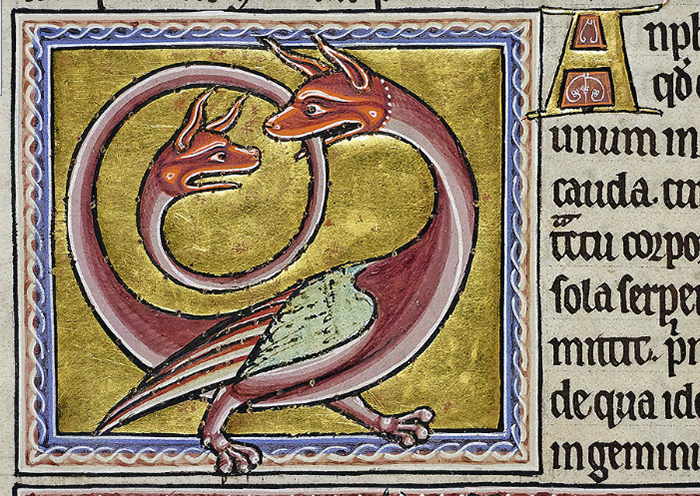 Anph
unum in
cauda. cu
tctu corpo
sola serpe
mittit. pr
de qua ide
in gemini